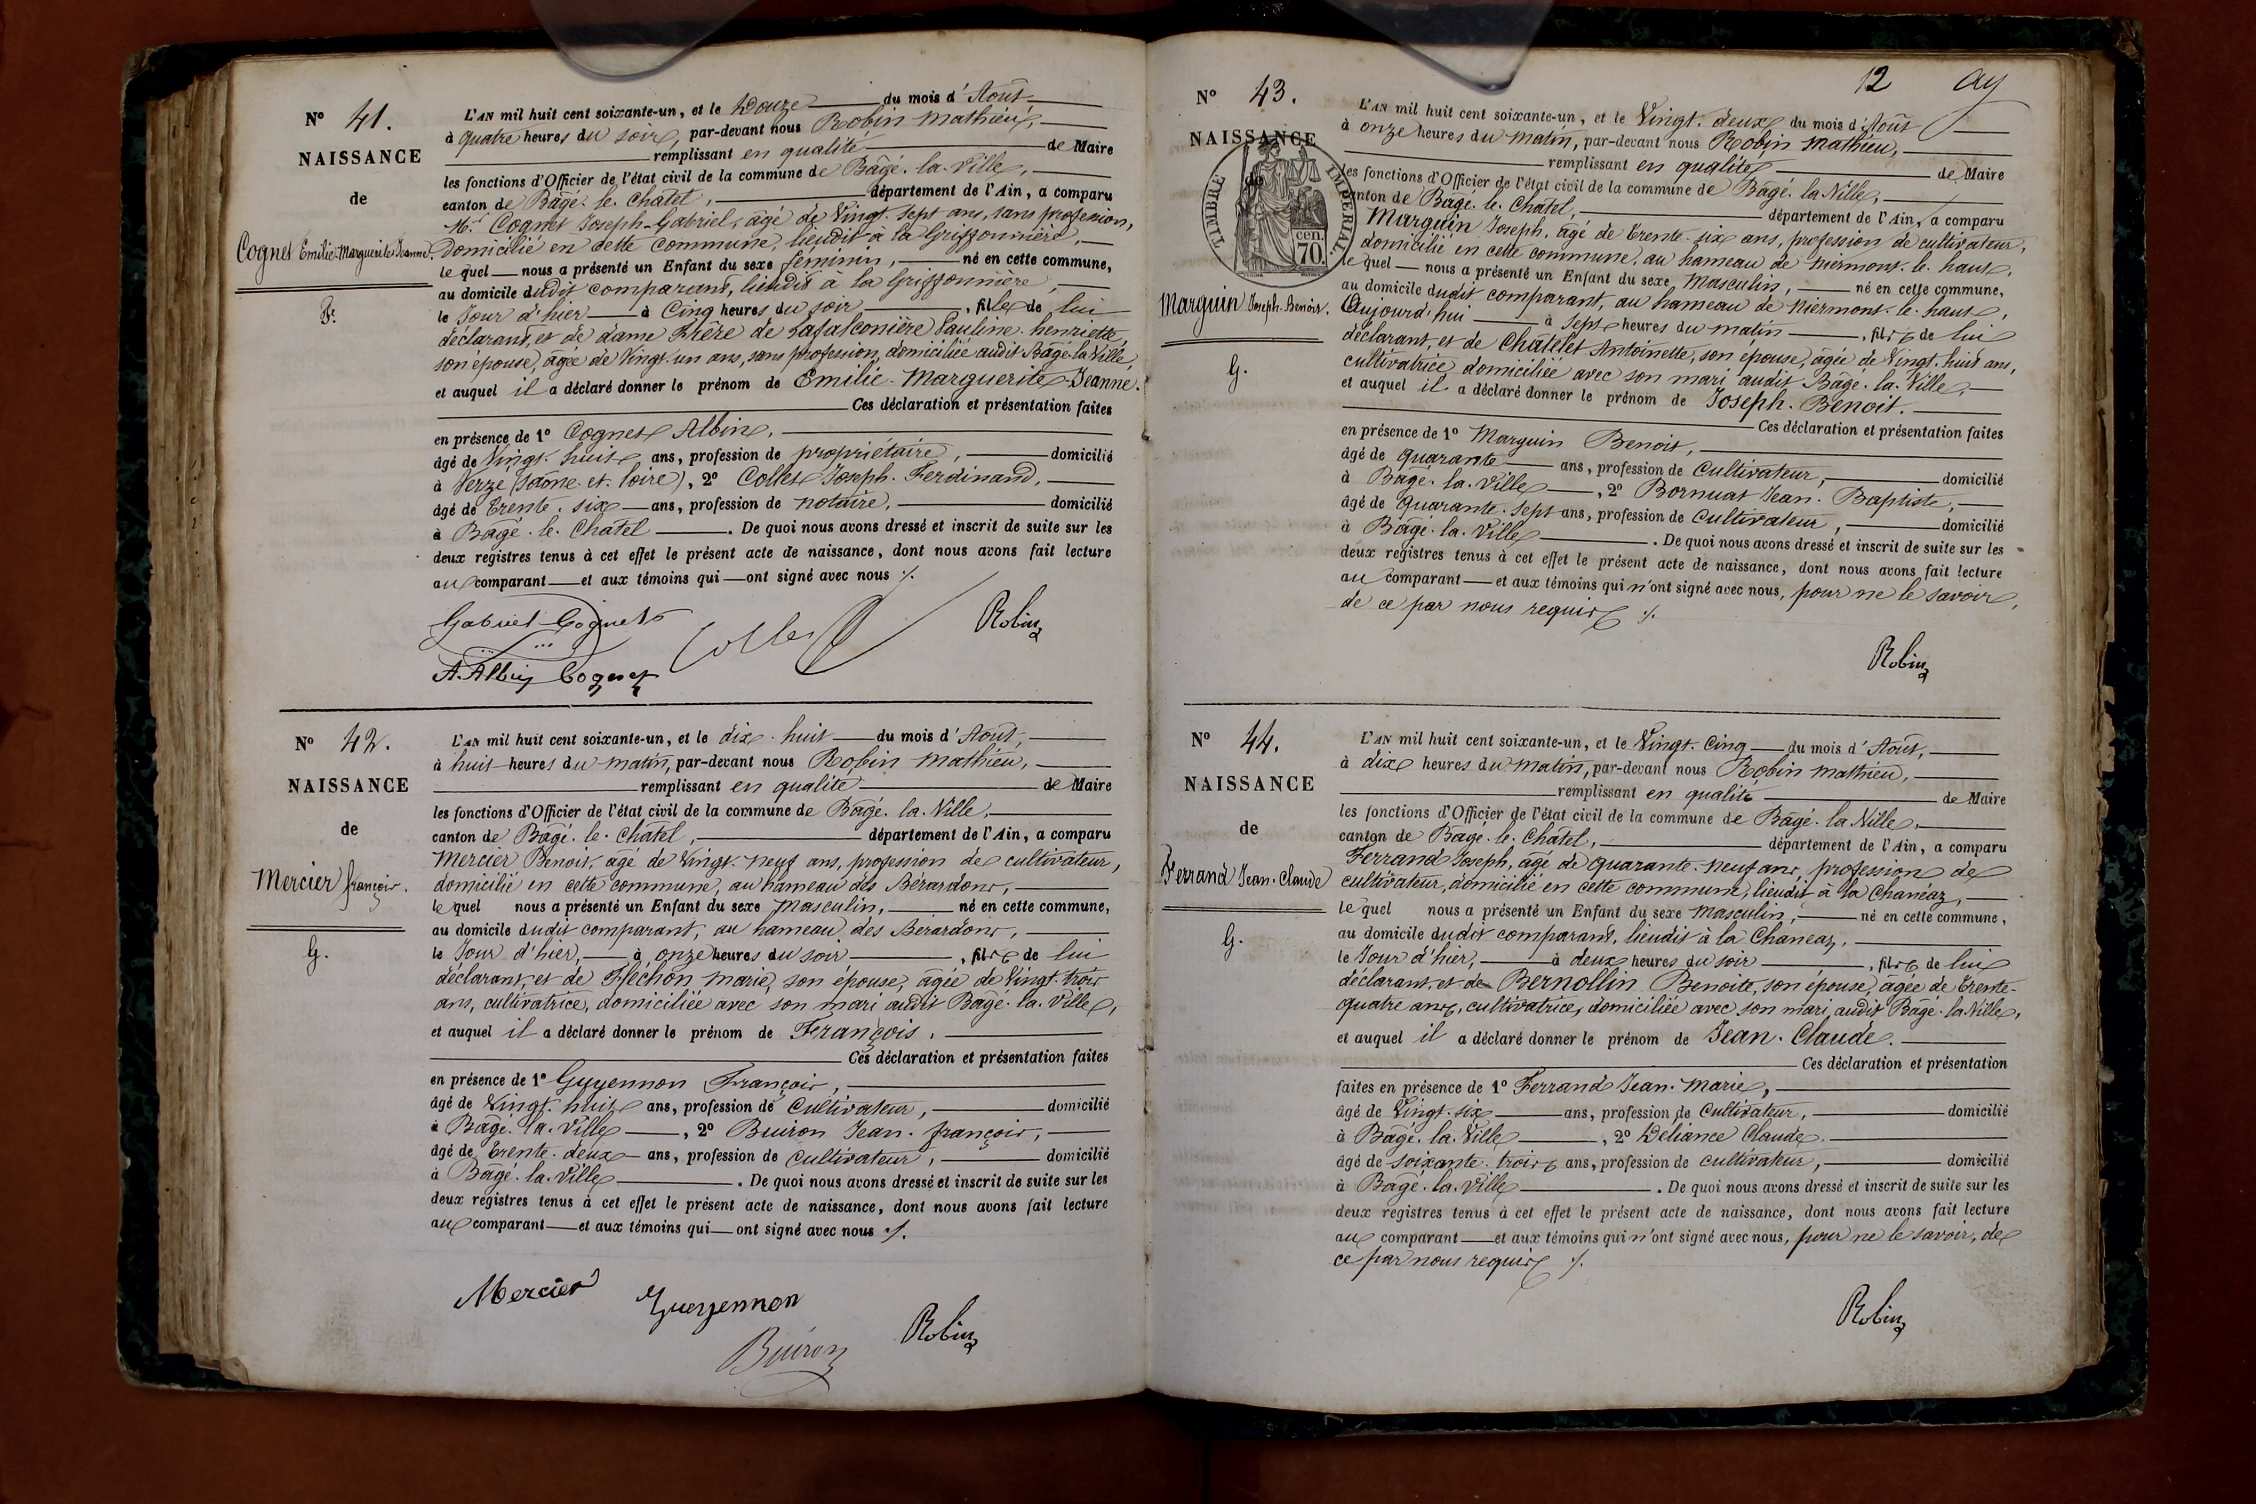 N° 41.
NAISSANCE
de
Cognet Emilie-Marguerite-Jeanne.
F.
L'AN mil huit cent soixante-un, et le Douze du mois d'Août
à quatre heures du soir, par-devant nous Robin Mathieu,
remplissant en qualité de Maire
les fonctions d'Officier de l'état civil de la commune de Bâgé-la-Ville,
canton de Bâgé-le-Châtel, département de l'Ain, a comparu
Mr. Cognet Joseph-Gabriel, âgé de Vingt-sept ans, sans profession,
Domicilié en cette commune, lieudit à la Griffonnière,
le quel nous a présenté un Enfant du sexe féminin, né en cette commune,
au domicile dudit comparant, lieudit à la Griffonnière,
le Jour d'hier à Cinq heures du soir, fille de lui
déclarant, et de dame Frère de Lafalconière Pauline-henriette,
son épouse, âgée de Vingt-un ans, sans profession, domiciliée audit Bâgé-la-Ville,
et auquel il a déclaré donner le prénom de Emilie-Marguerite-Jeanne.
Ces déclaration et présentation faites
en présence de 1° Cognet Albin,
âgé de Vingt-huit ans, profession de propriétaire, domicilié
à Verzé (Saône-et-loire), 2° Collet Joseph-Ferdinand,
âgé de Trente-six ans, profession de notaire, domicilié
à Bâgé-le-Châtel. De quoi nous avons dressé et inscrit de suite sur les
deux registres tenus à cet effet le présent acte de naissance, dont nous avons fait lecture
au comparant et aux témoins qui ont signé avec nous ./.
Gabriel Cognet
Collet
Robin
A. Albin Cognet
N° 42.
NAISSANCE
de
Mercier françois.
G.
L'AN mil huit cent soixante-un, et le dix-huit du mois d'Août,
à huit heures du matin, par-devant nous Robin Mathieu,
remplissant en qualité de Maire
les fonctions d'Officier de l'état civil de la commune de Bâgé-la-Ville,
canton de Bâgé-le-Châtel, département de l'Ain, a comparu
Mercier Benoit, âgé de Vingt-neuf ans, profession de cultivateur,
domicilié en cette commune, au hameau des Bérardons,
le quel nous a présenté un Enfant du sexe masculin, né en cette commune,
au domicile dudit comparant, au hameau des Bérardons,
le Jour d'hier, à onze heures du soir, fils de lui
déclarant, et de Fléchon marie, son épouse, âgée de Vingt-trois
ans, cultivatrice, domiciliée avec son mari audit Bâgé-la-Ville,
et auquel il a déclaré donner le prénom de François.
Ces déclaration et présentation faites
en présence de 1° Guyennon François,
âgé de Vingt-huit ans, profession de Cultivateur, domicilié
à Bâgé-la-Ville, 2° Buiron Jean-françois,
âgé de Trente-deux ans, profession de Cultivateur, domicilié
à Bâgé-la-Ville. De quoi nous avons dressé et inscrit de suite sur les
deux registres tenus à cet effet le présent acte de naissance, dont nous avons fait lecture
au comparant et aux témoins qui ont signé avec nous ./.
Mercier
Gueyennon
Buiron
Robin
12
N° 43.
NAISSANCE
de
TIMBRE IMPERIAL
70 cen.
Marguin Joseph-Benoit.
G.
L'AN mil huit cent soixante-un, et le Vingt-deux du mois d'Août
à onze heures du matin, par-devant nous Robin Mathieu,
remplissant en qualité de Maire
les fonctions d'Officier de l'état civil de la commune de Bâgé-la-Ville,
canton de Bâgé-le-Châtel, département de l'Ain, a comparu
Marguin Joseph, âgé de Trente-six ans, profession de cultivateur,
domicilié en cette commune, au hameau de niermont-le-haut,
le quel nous a présenté un Enfant du sexe Masculin, né en cette commune,
au domicile dudit comparant, au hameau de niermont-le-haut,
Aujourd'hui à sept heures du matin, fils de lui
déclarant, et de Châtelet Antoinette, son épouse, âgée de Vingt-huit ans,
cultivatrice domiciliée avec son mari audit Bâgé-la-Ville,
et auquel il a déclaré donner le prénom de Joseph-Benoit.
Ces déclaration et présentation faites
en présence de 1° Marguin Benoit,
âgé de quarante ans, profession de Cultivateur, domicilié
à Bâgé-la-Ville, 2° Bornuat Jean-Baptiste,
âgé de quarante-sept ans, profession de Cultivateur, domicilié
à Bâgé-la-Ville. De quoi nous avons dressé et inscrit de suite sur les
deux registres tenus à cet effet le présent acte de naissance, dont nous avons fait lecture
au comparant et aux témoins qui n'ont signé avec nous, pour ne le savoir,
de ce par nous requis ./.
Robin
N° 44.
NAISSANCE
de
Ferrand Jean-Claude
G.
L'AN mil huit cent soixante-un, et le Vingt-Cinq du mois d'Août,
à dix heures du matin, par-devant nous Robin Mathieu,
remplissant en qualité de Maire
les fonctions d'Officier de l'état civil de la commune de Bâgé-la-Ville,
canton de Bagé-le-Châtel, département de l'Ain, a comparu
Ferrand Joseph, âgé de quarante-neuf ans, profession de
cultivateur, domicilié en cette commune, lieudit à la Chanéaz,
le quel nous a présenté un Enfant du sexe masculin, né en cette commune,
au domicile dudit comparant, lieudit à la Chaneaz,
le Jour d'hier, à deux heures du soir, fils de lui
déclarant, et de Bernollin Benoite, son épouse, âgée de Trente-
quatre ans, cultivatrice, domiciliée avec son mari, audit Bâgé-la-Ville,
et auquel il a déclaré donner le prénom de Jean-Claude.
Ces déclaration et présentation
faites en présence de 1° Ferrand Jean-Marie,
âgé de Vingt-six ans, profession de Cultivateur, domicilié
à Bâgé-la-Ville, 2° Deliance Claude
âgé de soixante-trois ans, profession de cultivateur, domicilié
à Bâgé-la-Ville. De quoi nous avons dressé et inscrit de suite sur les
deux registres tenus à cet effet le présent acte de naissance, dont nous avons fait lecture
au comparant et aux témoins qui n'ont signé avec nous, pour ne le savoir, de
ce par nous requis ./.
Robin